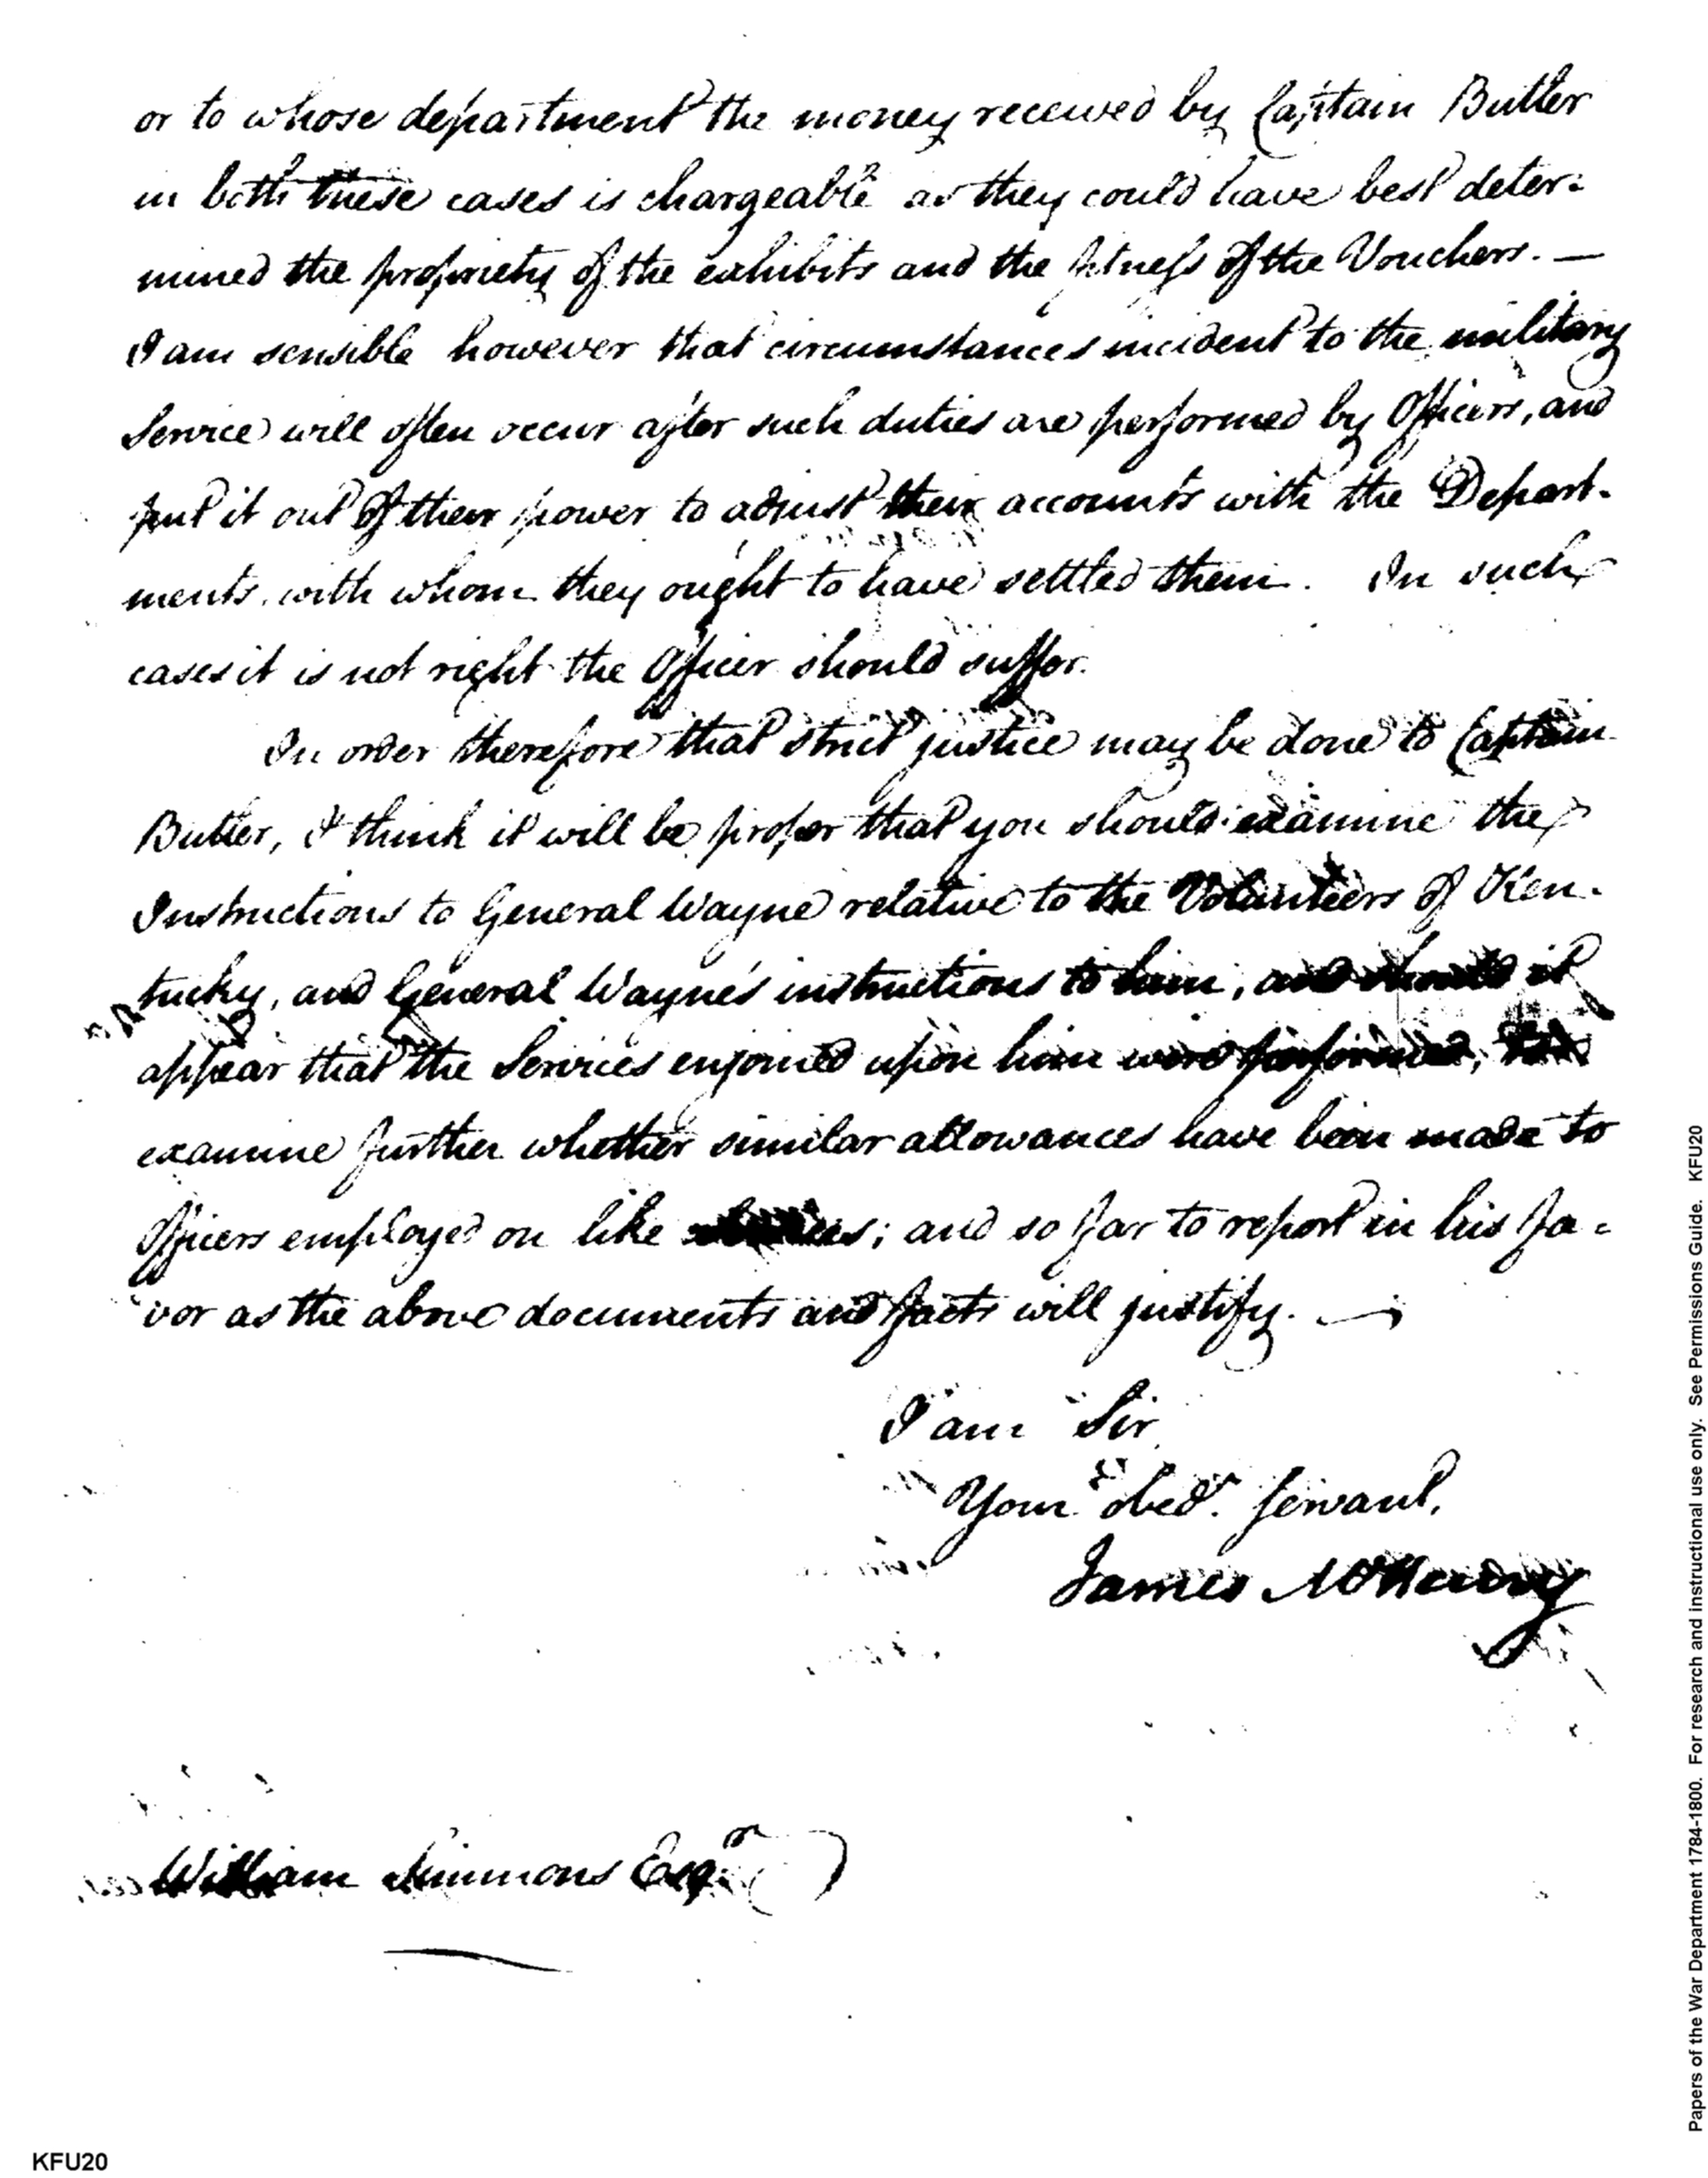 or to whose department the money received by Captain Butler
in both these cases is chargeable as they could have best deter:
mined the propriety of the exhibits and the fitness of the Vouchers. —
I am sensible however that circumstances incident to the military
Service will often occur after such duties are performed by Officers, and
put it out of their power to adjust their accounts with the Depart-
ments with whom they ought to have settled them. In such
cases it is not right the Officer should suffer.
In order therefore that strict justice may be done to Captain
Butler, I think it will be proper that you should examine the
Instructions to General Wayne relative to the Volunteers of Ken-
tucky, and General Wayne's instructions to him, and should it
appear that the Services enjoined upon him were performed,
examine further whether similar allowances have been made to
Officers employed on like ; and so far to report in his fa=
vor as the above documents and facts will justify. —
I am Sir
Your obedt. servant,
James McHenry
William Simmons Esqr.
Papers of the War Department 1784-1800. For research and instructional use only. See Permissions Guide. KFU20
KFU20